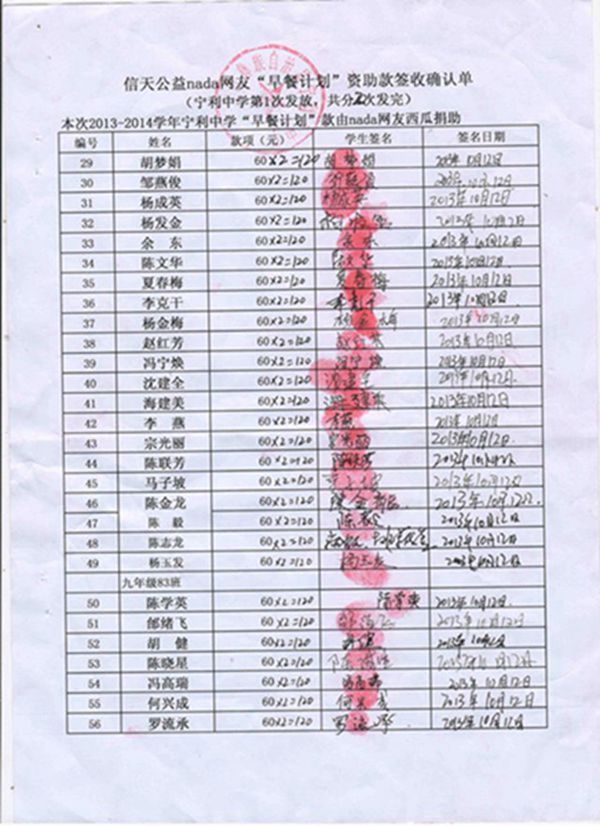 信天公益nada网友“早餐计划”资助款签收确认单
(宁利中学第1次发放，共分2次发完)
本次2013-2014学年宁利中学“早餐计划”款由nada网友西瓜捐助
编号 姓名 款项(元) 学生签名 签名日期
29 胡梦娟 60×2=120 胡梦娟 2013年10月12日
30 邹燕俊 60×2=120 2013年10月12日
31 杨成英 60×2=120 杨成英 2013年10月12日
32 杨发金 60×2=120 2013年10月12日
33 余 东 60×2=120 余东 2013年10月12日
34 陈文华 60×2=120 陈文华 2013年10月12日
35 夏春梅 60×2=120 夏春梅 2013年10月12日
36 李克干 60×2=120 李克干 2013年10月12日
37 杨金梅 60×2=120 杨金梅 2013年10月12日
38 赵红芳 60×2=120 赵红芳 2013年10月12日
39 冯宁焕 60×2=120 冯宁焕 2013年10月12日
40 沈建全 60×2=120 沈建全 2013年10月12日
41 海建美 60×2=120 海建美 2013年10月12日
42 李 燕 60×2=120 李燕 2013年10月12日
43 宗光丽 60×2=120 宗光丽 2013年10月12日
44 陈联芳 60×2=120 陈联芳 2013年10月12日
45 马子坡 60×2=120 2013年10月12日
46 陈金龙 60×2=120 陈金龙 2013年10月12日
47 陈 毅 60×2=120 陈毅 2013年10月12日
48 陈志龙 60×2=120 2013年10月12日
49 杨玉发 60×2=120 杨玉发 2013年10月12日
九年级83班
50 陈学英 60×2=120 陈学英 2013年10月12日
51 邰绪飞 60×2=120 2013年10月12日
52 胡 健 60×2=120 胡健 2013年10月12日
53 陈晓星 60×2=120 陈晓星 2013年10月12日
54 冯高瑞 60×2=120 冯高瑞 2013年10月12日
55 何兴成 60×2=120 何兴成 2013年10月12日
56 罗流承 60×2=120 罗流承 2013年10月12日